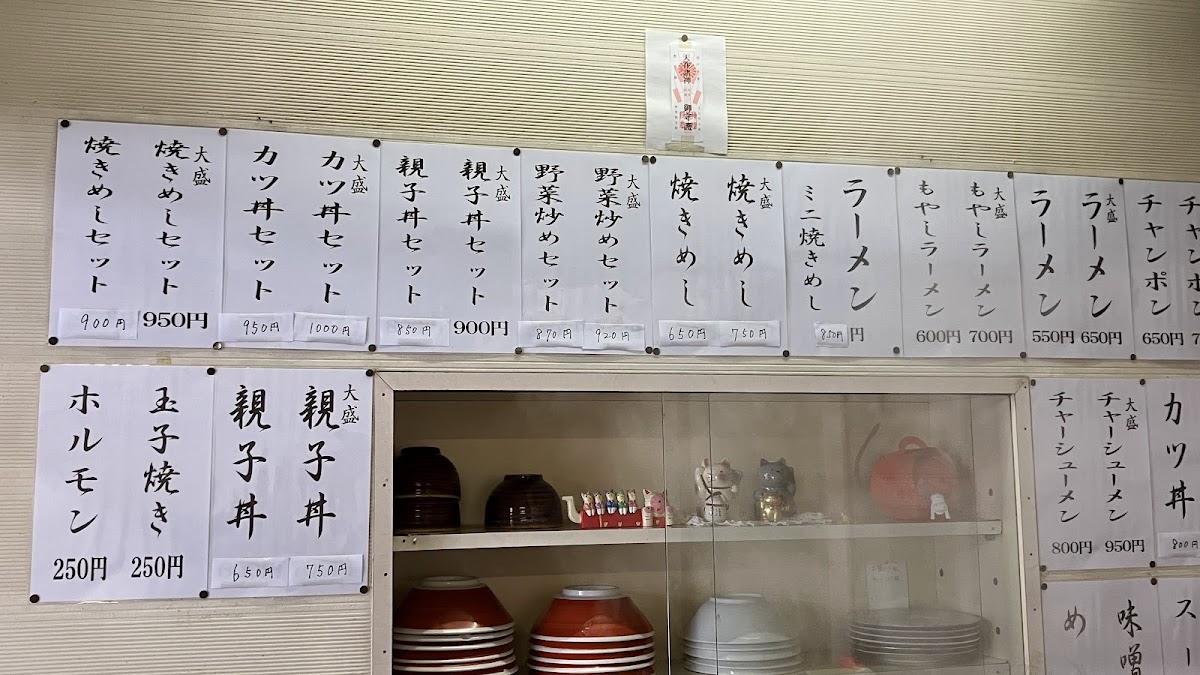 チャンポン
チャンポン
650円
大盛
ラーメン
650円
ラーメン
550円
大盛
もやしラーメン
700円
もやしラーメン
600円
ラーメン
ミニ焼きめし
850円
大盛
焼きめし
750円
焼きめし
650円
大盛
野菜炒めセット
920円
野菜炒めセット
870円
大盛
親子丼セット
900円
親子丼セット
850円
大盛
カツ丼セット
1000円
カツ丼セット
950円
大盛
焼きめしセット
950円
焼きめしセット
900円
カツ丼
800円
大盛
チャーシューメン
950円
チャーシューメン
800円
大盛
親子丼
750円
親子丼
650円
玉子焼き
250円
ホルモン
250円
スー
味噌
め